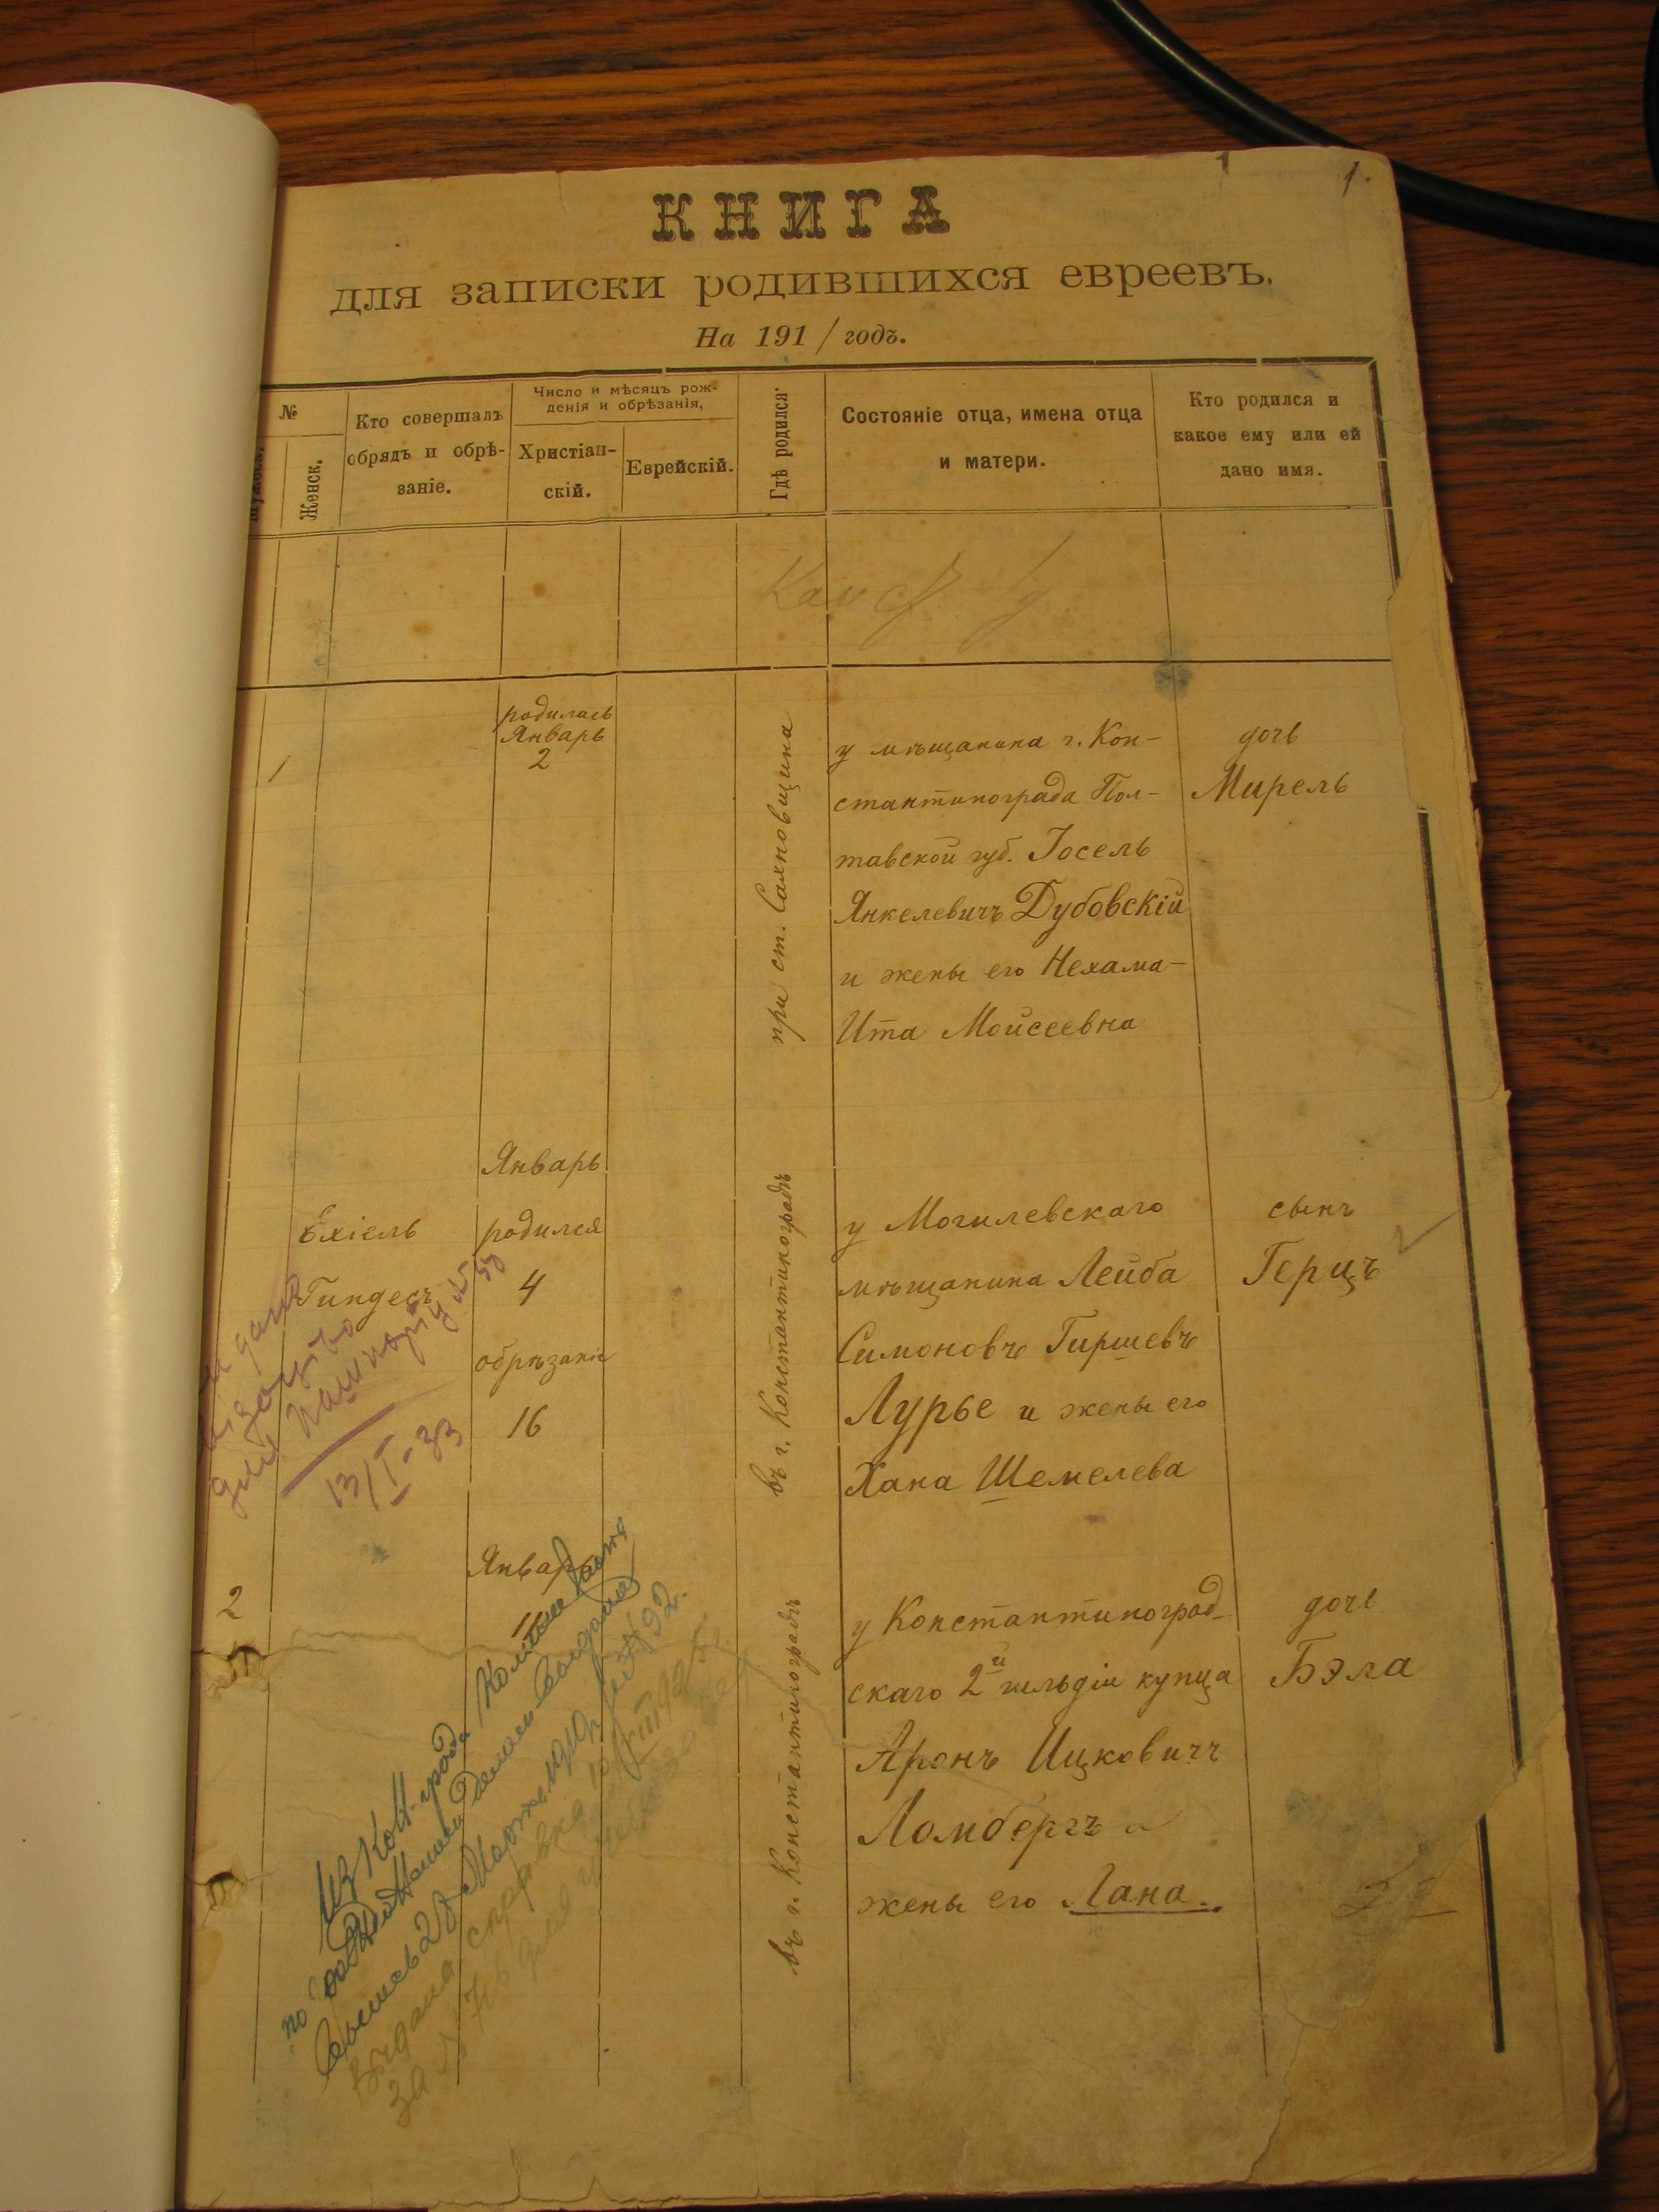 1.
КНИГА
для записки родившихся евреевъ.
На 191/годъ.
№
Женск.
Кто совершалъ
обрядъ и обрѣ-
заніе.
Число и мѣсяцъ рож-
денія и обрѣзанія,
Христіан-
скій.
Еврейскій.
Гдѣ родился
Состояніе отца, имена отца
и матери.
Кто родился и
какое ему или ей
дано имя.
1
родилась
Январь
2
при ст.
у мѣщанина г. Кон-
стантинограда Пол-
тавской губ. Іосель
Янкелевичъ Дубовскій
и жены его Нехама-
Ита Моисеевна
дочь
Мирель
Ехіель
Гиндесъ
Январь
родился
4
обрѣзаніе
16
въ г. Константиноградѣ
у Могилевскаго
мѣщанина Лейба
Симоновъ Гиршевъ
Лурье и жены его
Хана Шемелева
сынъ
Герцъ
13/I-33
2
Январь
11
въ г. Константиноградѣ
у Константиноград-
скаго 2й гильдіи купца
Аронъ Ицковичъ
Ломбергъ и
жены его Лана.
дочь
Бэла
выдана справка